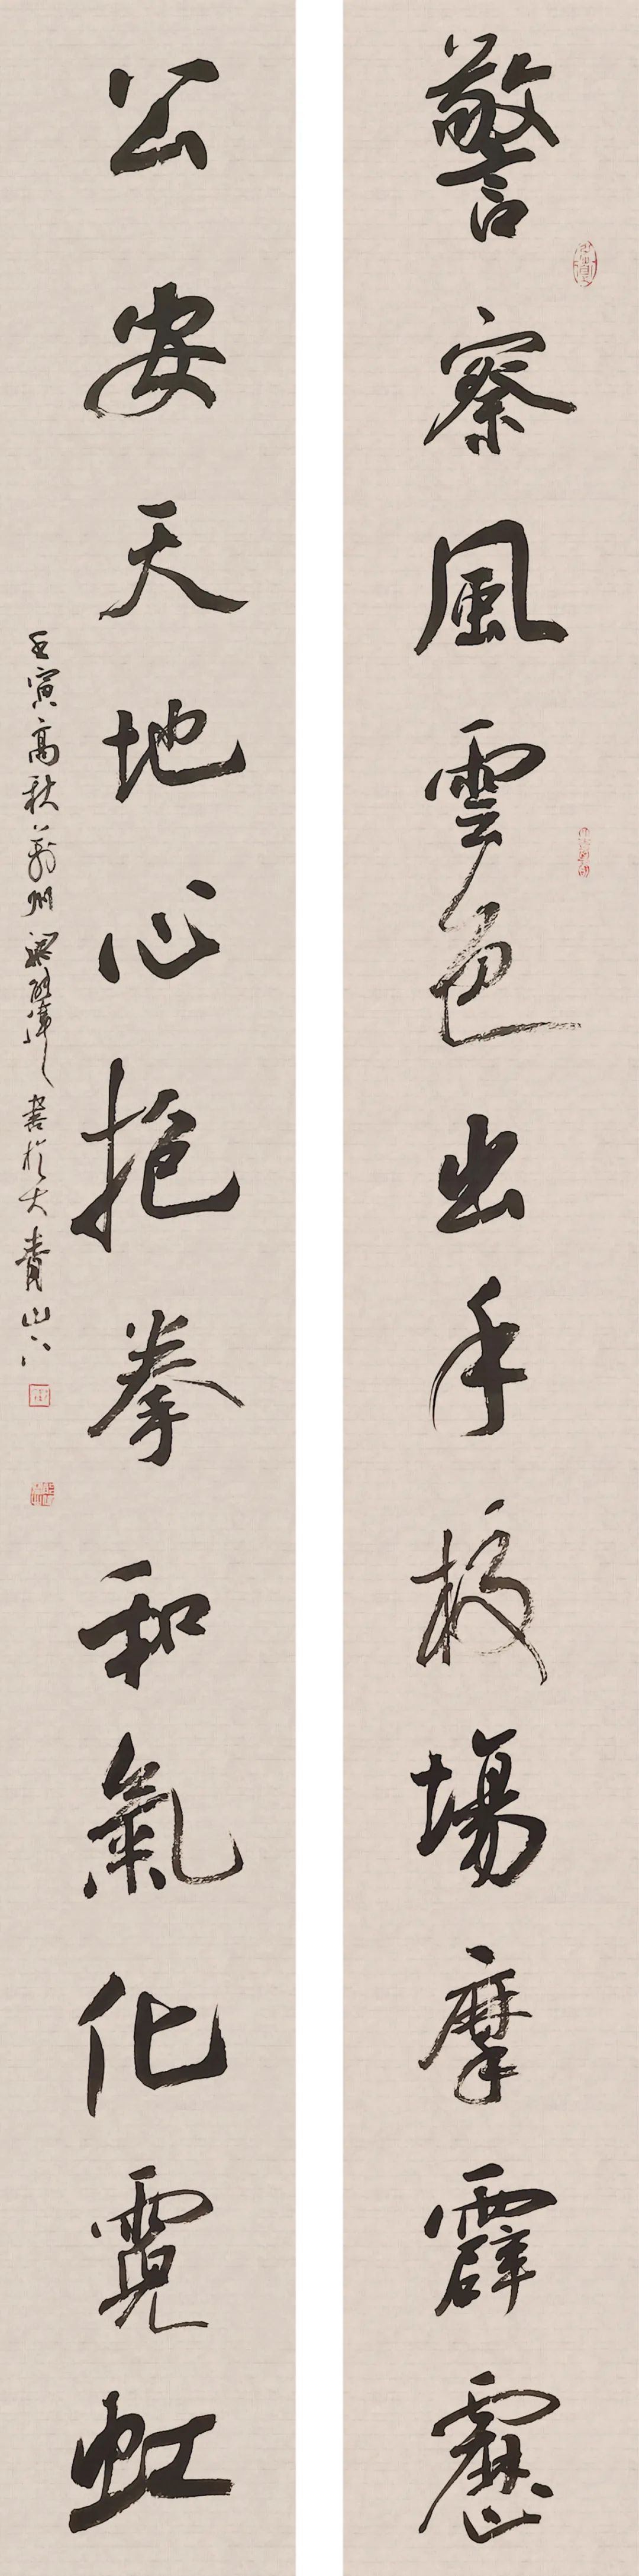 警察風雲色出手校場摩霹靂
公安天地心抱拳和氣化霓虹
壬寅高秋萬州 書於大賁山下